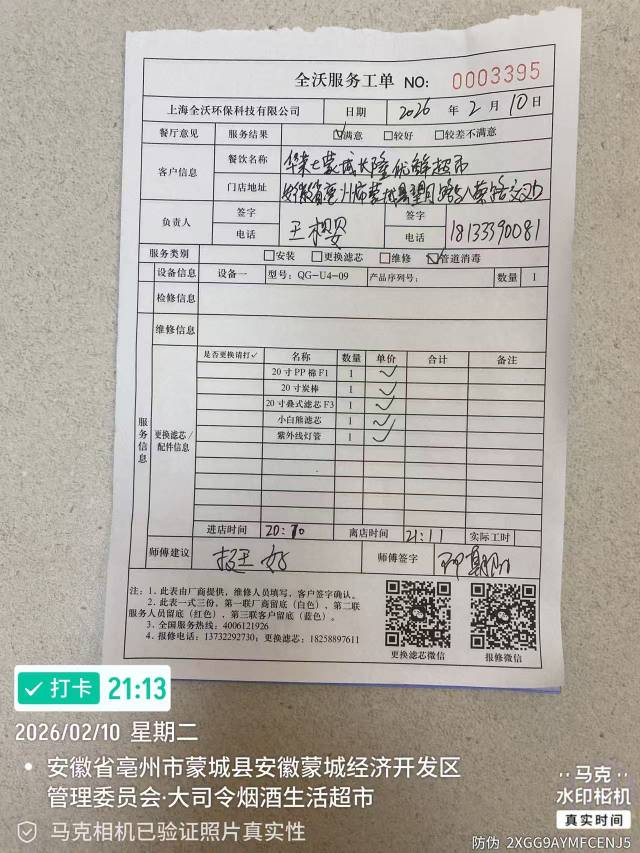 全沃服务工单 NO: 0003395
上海全沃环保科技有限公司 日期 2026 年 2 月 10 日
餐厅意见 服务结果 ☑满意 □较好 □较差不满意
客户信息 餐饮名称 华莱士蒙城大隆优鲜超市
门店地址 安徽省亳州市蒙城县
负责人 签字 王樱 签字
电话 电话 18133390081
服务类别 □安装 □更换滤芯 □维修 ☑管道消毒
设备信息 设备一 型号: QG-U4-09 产品序列号: 数量 1
检修信息
维修信息
服务信息 更换滤芯/配件信息 是否更换请打✓ 名称 数量 单价 合计 备注
20寸PP棉F1 1 ✓
20寸炭棒 1 ✓
20寸叠式滤芯F3 1 ✓
小白熊滤芯 1 ✓
紫外线灯管 1 ✓
进店时间 20:10 离店时间 21:11 实际工时
师傅建议 师傅签字
注: 1、此表由厂商提供, 维修人员填写, 客户签字确认。
2、此表一式三份, 第一联厂商留底(白色)、第二联
服务人员留底(红色)、第三联客户留底(蓝色)。
3、全国服务热线: 4006121926
4、报修电话: 13732292730; 更换滤芯: 18258897611
更换滤芯微信 报修微信
打卡 21:13
2026/02/10 星期二
安徽省亳州市蒙城县安徽蒙城经济开发区
管理委员会·大司令烟酒生活超市
马克相机已验证照片真实性
马克
水印相机
真实时间
防伪 2XGG9AYMFCENJ5